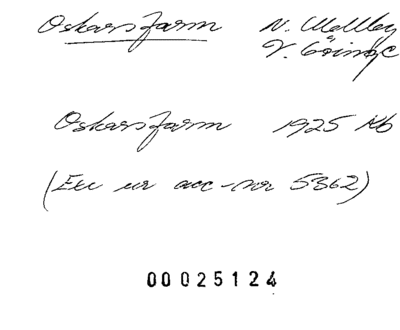 Oskarsfarm N. Mellby
V. Göinge
Oskarsfarm 1925 Kb
(Ex ur acc-nr 5362)
00025124